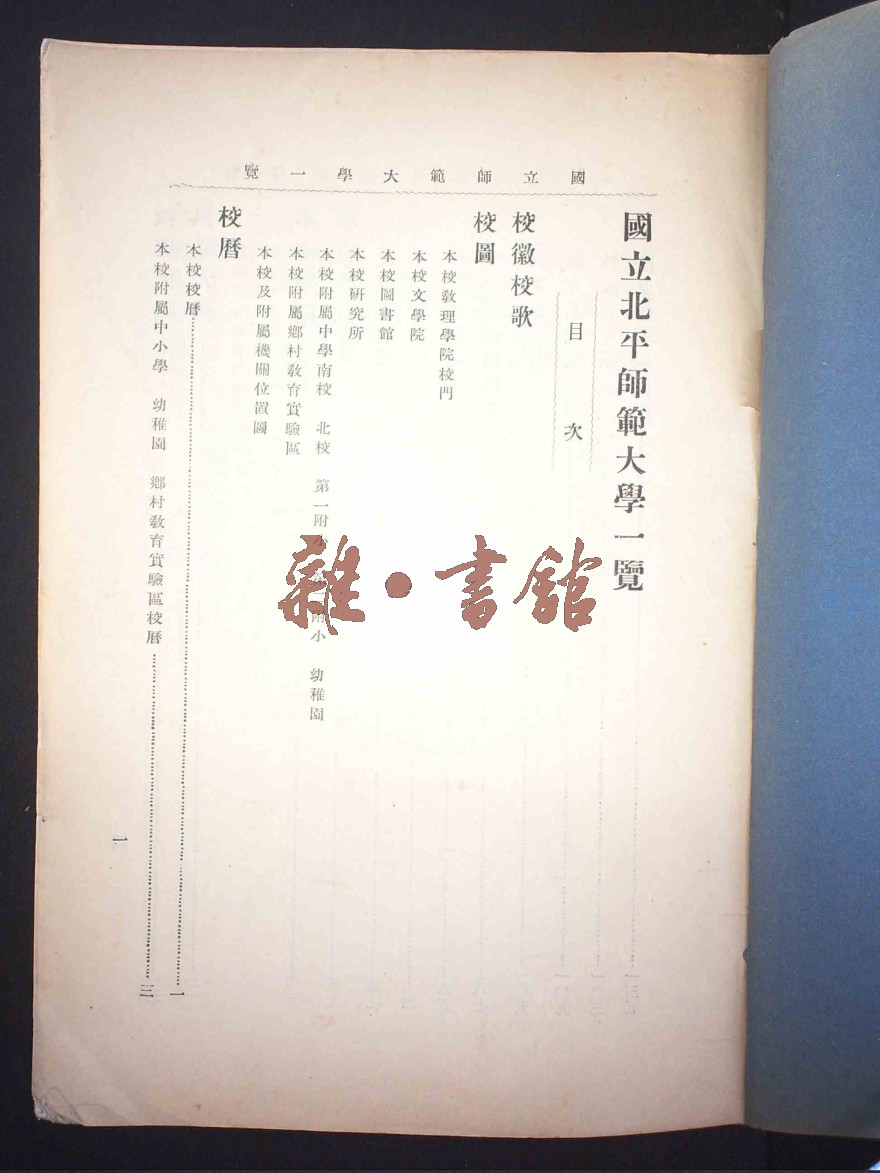 國立師範大學一覽
國立北平師範大學一覽
目次
校徽校歌
校圖
本校教理學院校門
本校文學院
本校圖書館
本校研究所
本校附屬中學南校 北校 第一附小 第二附小 幼稚園
本校附屬鄉村教育實驗區
本校及附屬機關位置圖
校曆
本校校曆 一
本校附屬中小學 幼稚園 鄉村教育實驗區校曆 三
一
雜·書館